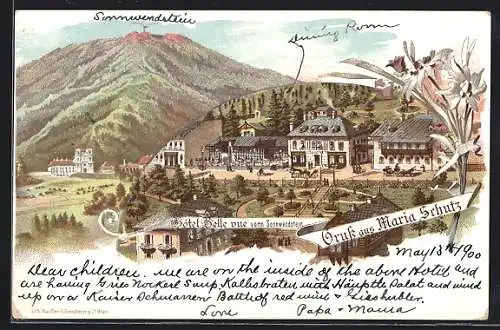 Sonnwendstein
Dining Room
Hôtel Belle vue vom Sonnwendstein
Gruß aus Maria Schutz
May 13th 1900
Dear children. we are on the inside of the above Hotel and
are having Gries Nockerl Soup, Kalbsbraten with Häuptle Salat and wind
up on a Kaiser Schmarren Bottle of red wine & Gieshübler.
Love Papa & Mama